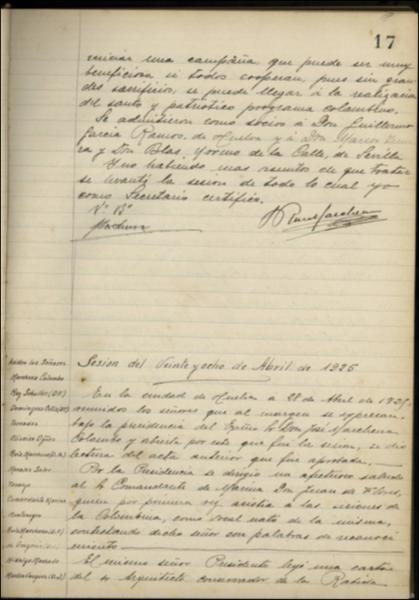 17
iniciar una campaña que puede ser muy
beneficiosa si todos cooperan, pues sin gran-
des sacrificios, se puede llegar á la realización
del santo y patriótico programa colombino.
Se admitieron como socios á Don Guillermo
García Ramos, de Huelva y á Don Marcos
ra y Don Blas de la Calle, de Sevilla
Y no habiendo mas asuntos de que tratar
se levantó la sesion de todo lo cual yo
como Secretario certifico.
Vº Bº
Marchena
Sesion del Veinteyocho de Abril de 1925
En la ciudad de Huelva a 28 de Abril de 1925
reunidos los señores que al margen se expresan
bajo la presidencia del Don José Marchena
Colombo y abierta por este que fué la sesión, se dio
lectura del acta anterior que fue aprobada.
Por la Presidencia se dirigió un afectuoso saludo
al Comandante de Marina Don Juan de
quien por primera vez asistía á las sesiones de
la Colombina, como vocal nato de la misma,
contestando dicho señor con palabras de reconoci
miento
El mismo señor Presidente leyó una carta
del Arquitecto conservador de la Rabida
Señores
Marchena Colombo
Dominguez
Terrades
Oliveira
Ruiz Marchena
Comandante Marina
Hidalgo Machado